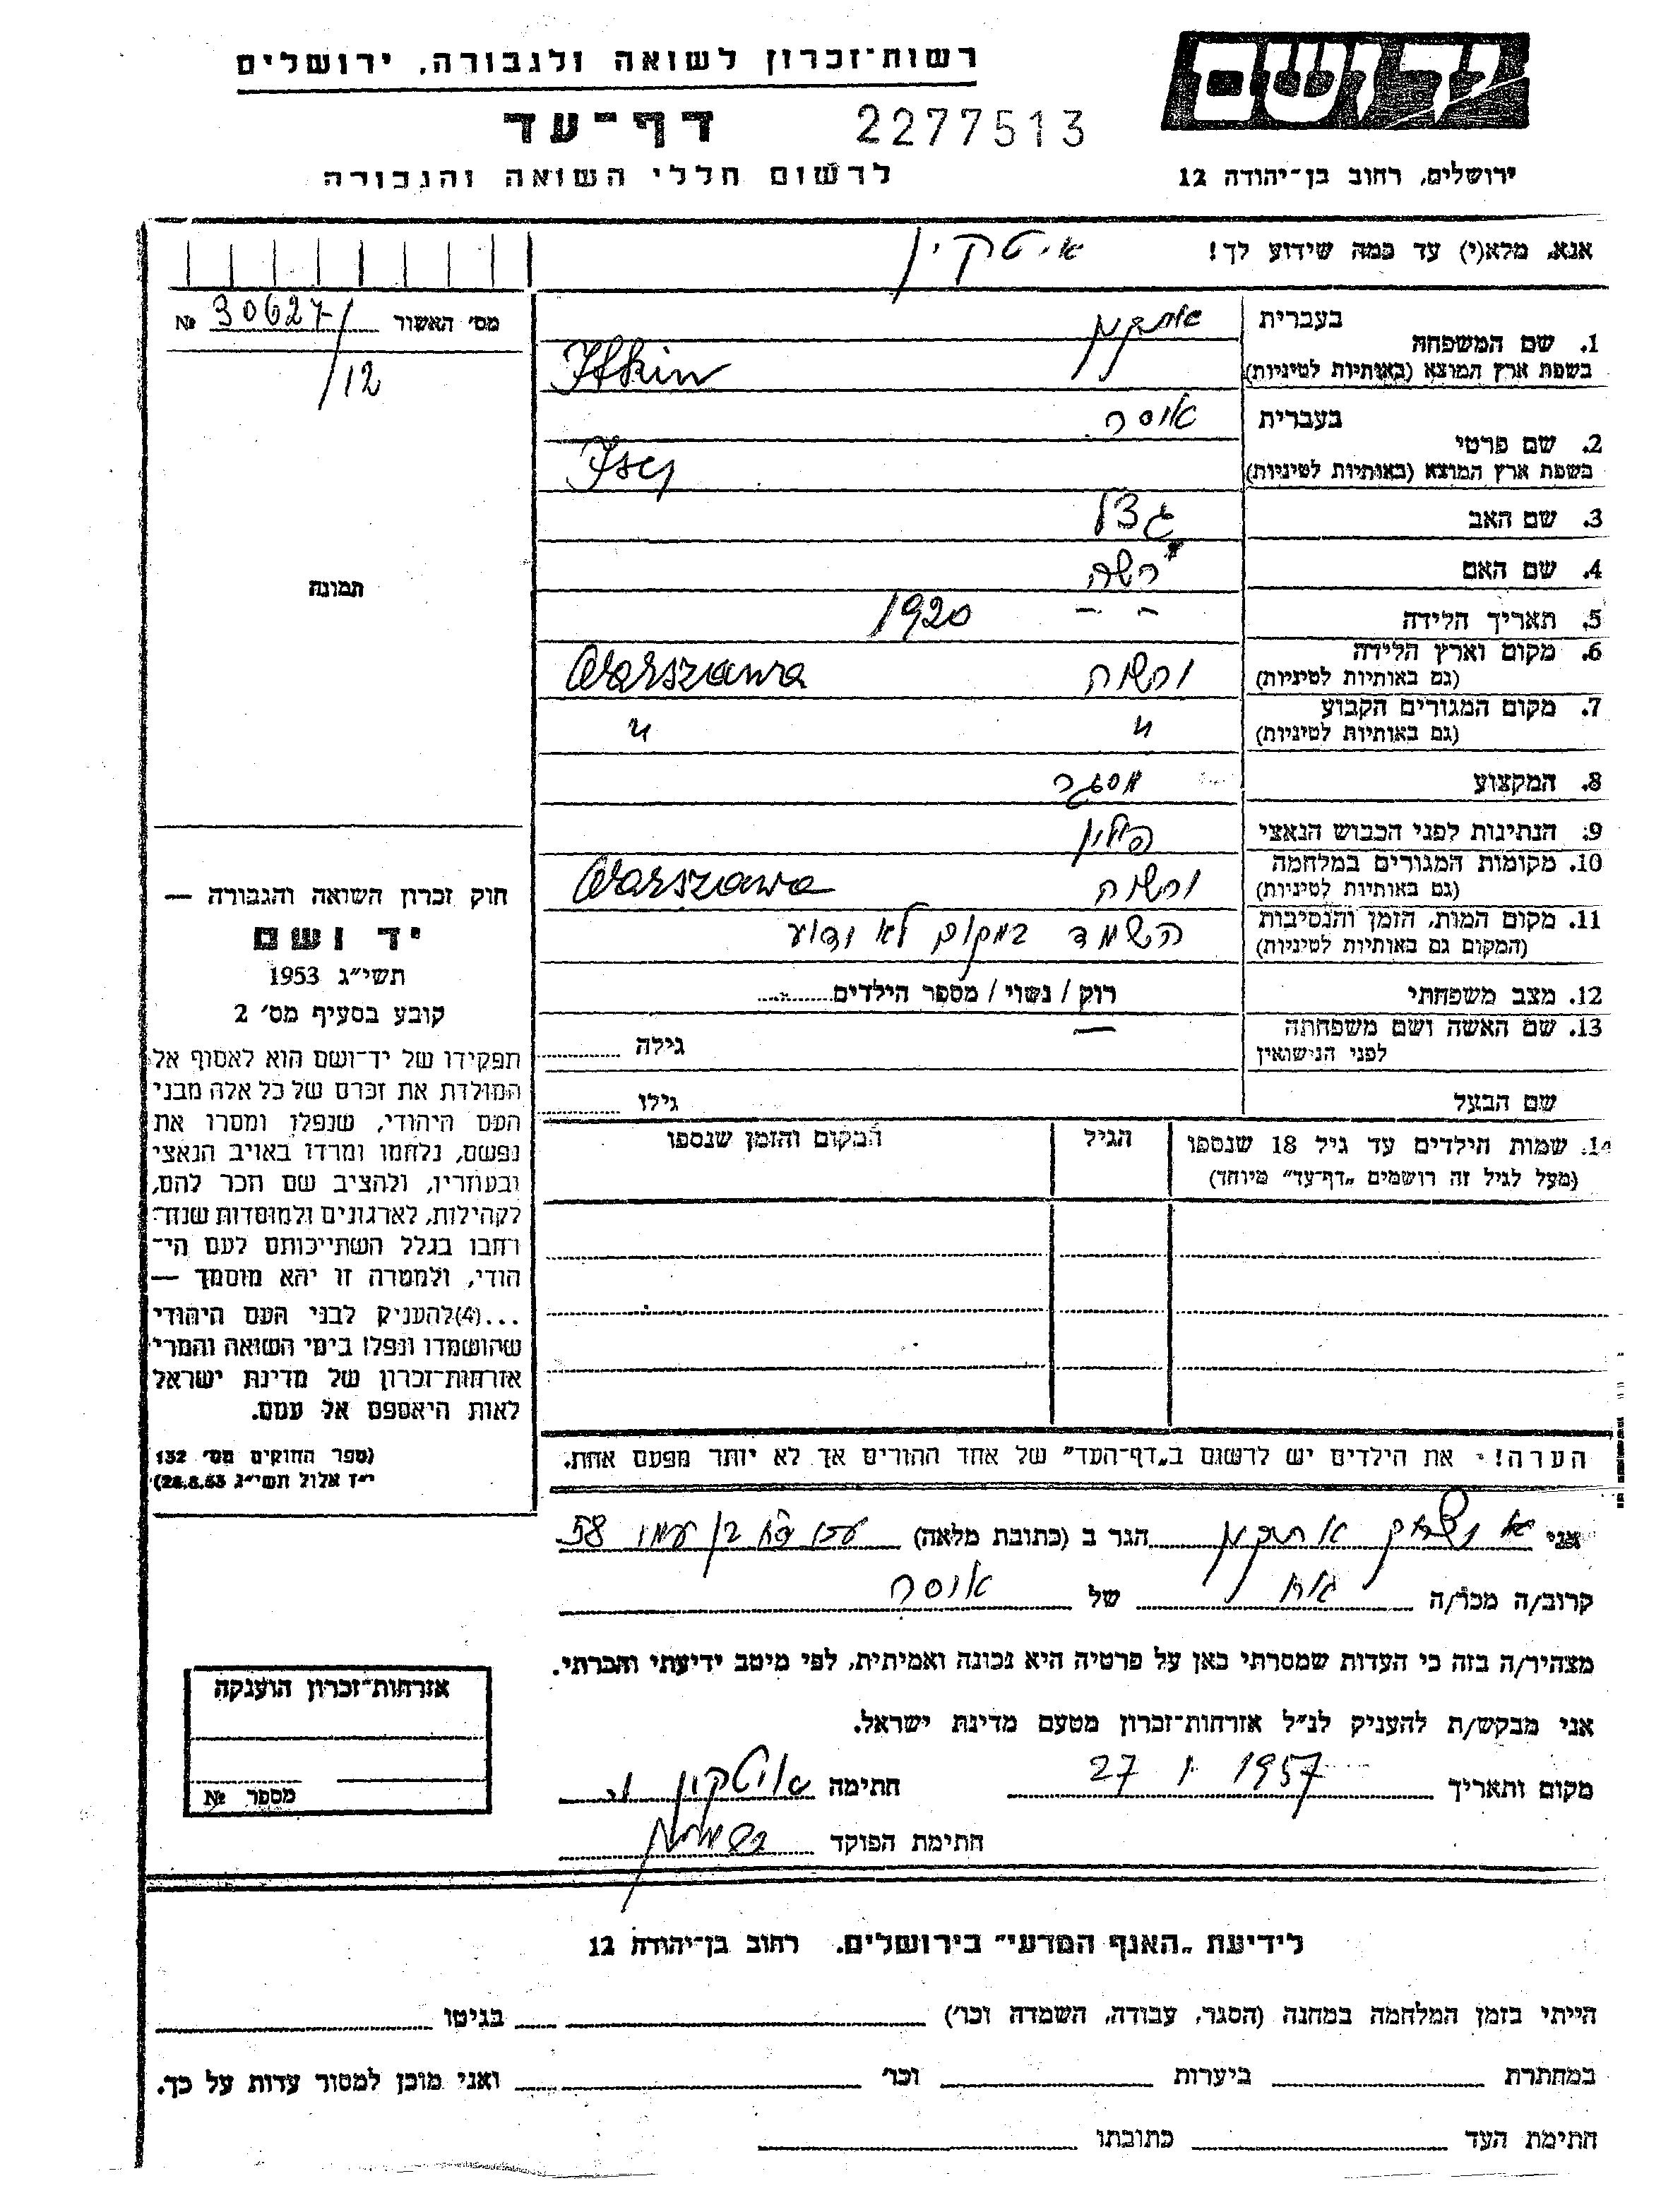 רשות־זכרון לשואה ולגבורה, ירושלים
יד ושם
דף־עד
2277513
לרשום חללי השואה והגבורה
ירושלים, רחוב בן־יהודה 12
אנא, מלא(י) עד כמה שידוע לך!
איטקין
מס' האשור 30627/12 №
1. שם המשפחה
בעברית איטקין
בשפת ארץ המוצא (באותיות לטיניות) Itkin
2. שם פרטי
בעברית איסר
בשפת ארץ המוצא (באותיות לטיניות) Iser
3. שם האב גצל
4. שם האם רשה
5. תאריך הלידה - - 1920
6. מקום וארץ הלידה ורשה Warszawa
(גם באותיות לטיניות)
7. מקום המגורים הקבוע " "
(גם באותיות לטיניות)
8. המקצוע מסגר
9. הנתינות לפני הכבוש הנאצי פולין
10. מקומות המגורים במלחמה ורשה Warszawa
(גם באותיות לטיניות)
11. מקום המות, הזמן והנסיבות השמד במקום לא ידוע
(המקום גם באותיות לטיניות)
12. מצב משפחתי רוק / נשוי / מספר הילדים
13. שם האשה ושם משפחתה — גילה
לפני הנישואין
שם הבעל גילו
14. שמות הילדים עד גיל 18 שנספו הגיל המקום והזמן שנספו
(מעל לגיל זה רושמים „דף־עד" מיוחד)
הערה! - את הילדים יש לרשום ב„דף־העד" של אחד ההורים אך לא יותר מפעם אחת.
תמונה
חוק זכרון השואה והגבורה —
יד ושם
תשי"ג 1953
קובע בסעיף מס' 2
תפקידו של יד־ושם הוא לאסוף אל
המולדת את זכרם של כל אלה מבני
העם היהודי, שנפלו ומסרו את
נפשם, נלחמו ומרדו באויב הנאצי
ובעוזריו, ולהציב שם וזכר להם,
לקהילות, לארגונים ולמוסדות שנח־
רחבו בגלל השתייכותם לעם הי־
הודי, ולמטרה זו יהא מוסמך —
...(4)להעניק לבני העם היהודי
שהושמדו ונפלו בימי השואה והמרי
אזרחות־זכרון של מדינת ישראל
לאות היאספם אל עמם.
(ספר החוקים מס' 132
י"ז אלול תשי"ג 28.8.53)
אני איטקין הגר ב (כתובת מלאה) בן עמי 58
קרוב/ה מכר/ה אח של איסר
מצהיר/ה בזה כי העדות שמסרתי כאן על פרטיה היא נכונה ואמיתית, לפי מיטב ידיעתי והכרתי.
אני מבקש/ת להעניק לנ"ל אזרחות־זכרון מטעם מדינת ישראל.
מקום ותאריך 27 1 1957 חתימה איטקין
חתימת הפוקד
אזרחות־זכרון הוענקה
מספר №
לידיעת „האגף המדעי" בירושלים, רחוב בן־יהודה 12
הייתי בזמן המלחמה במחנה (הסגר, עבודה, השמדה וכו') בגיטו
במחתרת ביערות וכו' ואני מוכן למסור עדות על כך.
חתימת העד כתובתו